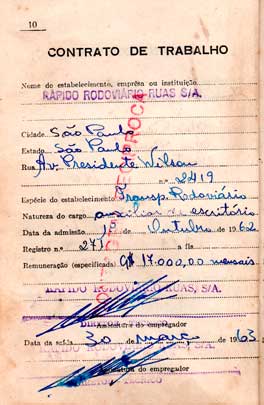 10
CONTRATO DE TRABALHO
Nome do estabelecimento, emprêsa ou instituição
RÁPIDO RODOVIÁRIO RUAS S/A.
Cidade São Paulo
Estado São Paulo
Rua Av. Presidente Wilson
n.º 2419
Espécie do estabelecimento Transp. Rodoviário
Natureza do cargo auxiliar de escritório
Data da admissão 1º de Outubro de 1962
Registro n.º 271 a fls
Remuneração (especificada) Cr$ 17.000,00 mensais
RÁPIDO RODOVIÁRIO RUAS, S/A.
Assinatura do empregador
Data da saída 30 de março de 1963
RÁPIDO RODOVIÁRIO RUAS, S/A.
Assinatura do empregador